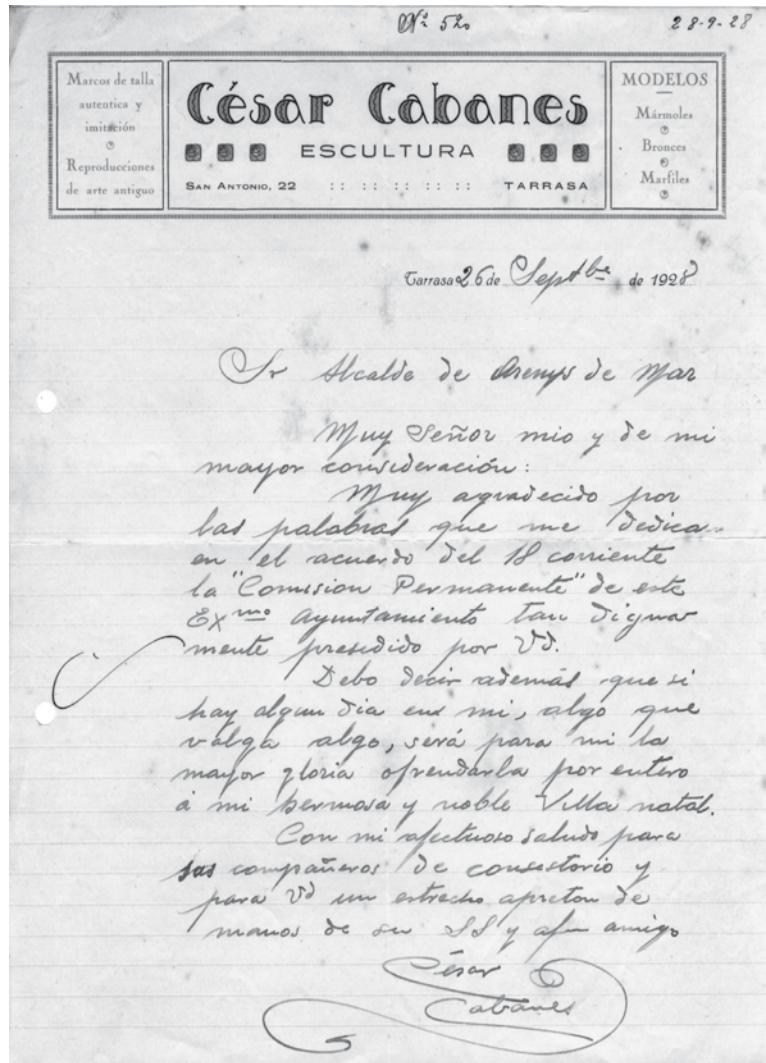 Nº 520 28-9-28
Marcos de talla
autentica y
imitación
Reproducciones
de arte antiguo
César Cabanes
ESCULTURA
SAN ANTONIO, 22 :: :: :: :: :: TARRASA
MODELOS
Mármoles
Bronces
Marfiles
Tarrasa 26 de Septbre de 1928
Sr Alcalde de Arenys de Mar
Muy Señor mio y de mi
mayor consideración:
Muy agradecido por
las palabras que me dedica
en el acuerdo del 18 corriente
la "Comision Permanente" de este
Exmo Ayuntamiento tan digna
mente presidido por Vd.
Debo decir además que si
hay algun dia en mi, algo que
valga algo, será para mi la
mayor gloria ofrendarla por entero
á mi hermosa y noble Villa natal.
Con mi afectuoso saludo para
sus compañeros de consistorio y
para Vd un estrecho apreton de
manos de su SS y afm amigo
César
Cabanes